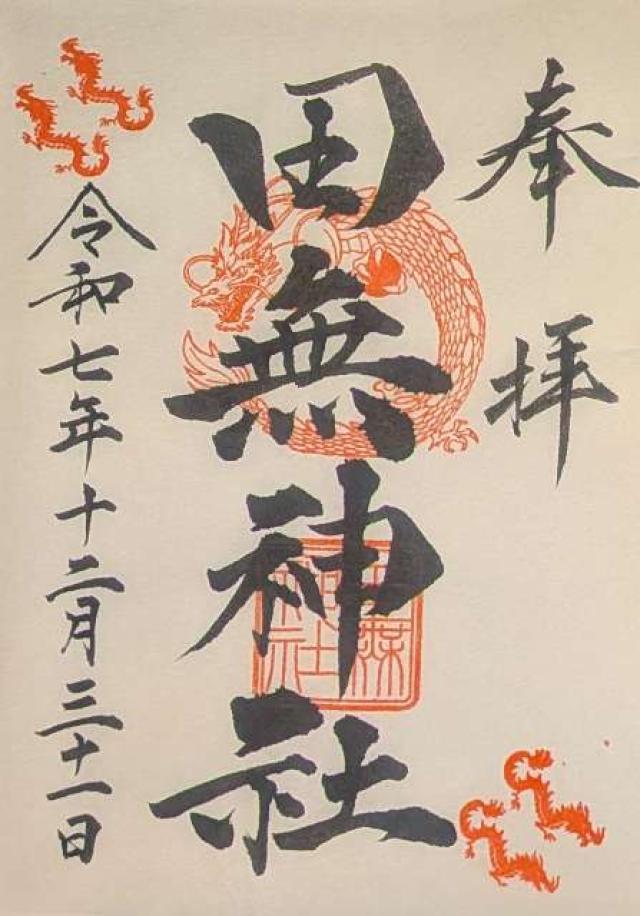 奉拝
田無神社
令和七年十二月三十一日